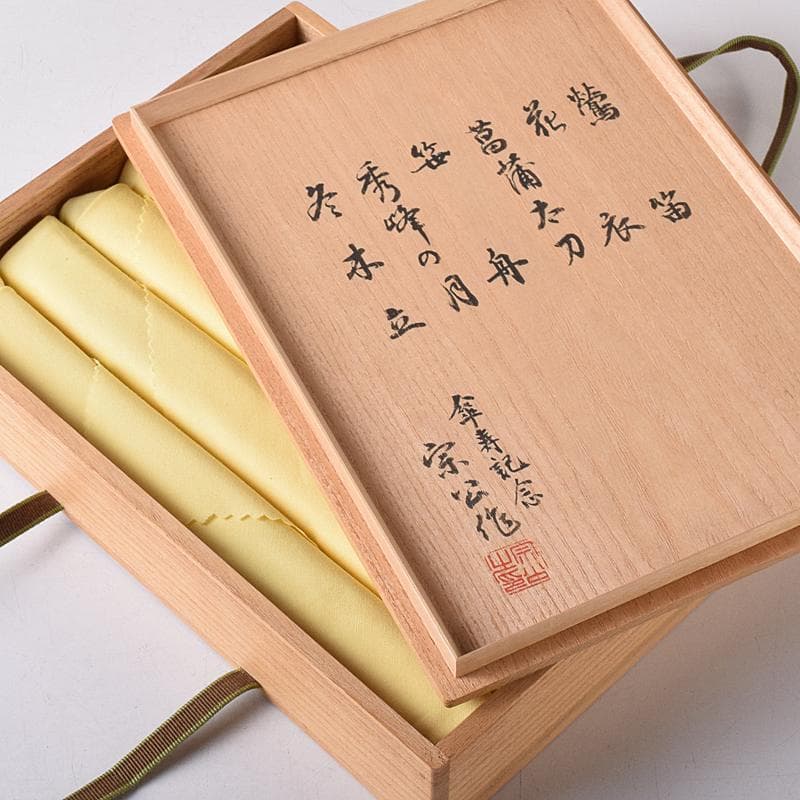 鶯笛
花衣
菖蒲太刀
笹舟
秀峰の月
冬木立
傘寿記念
宗公作